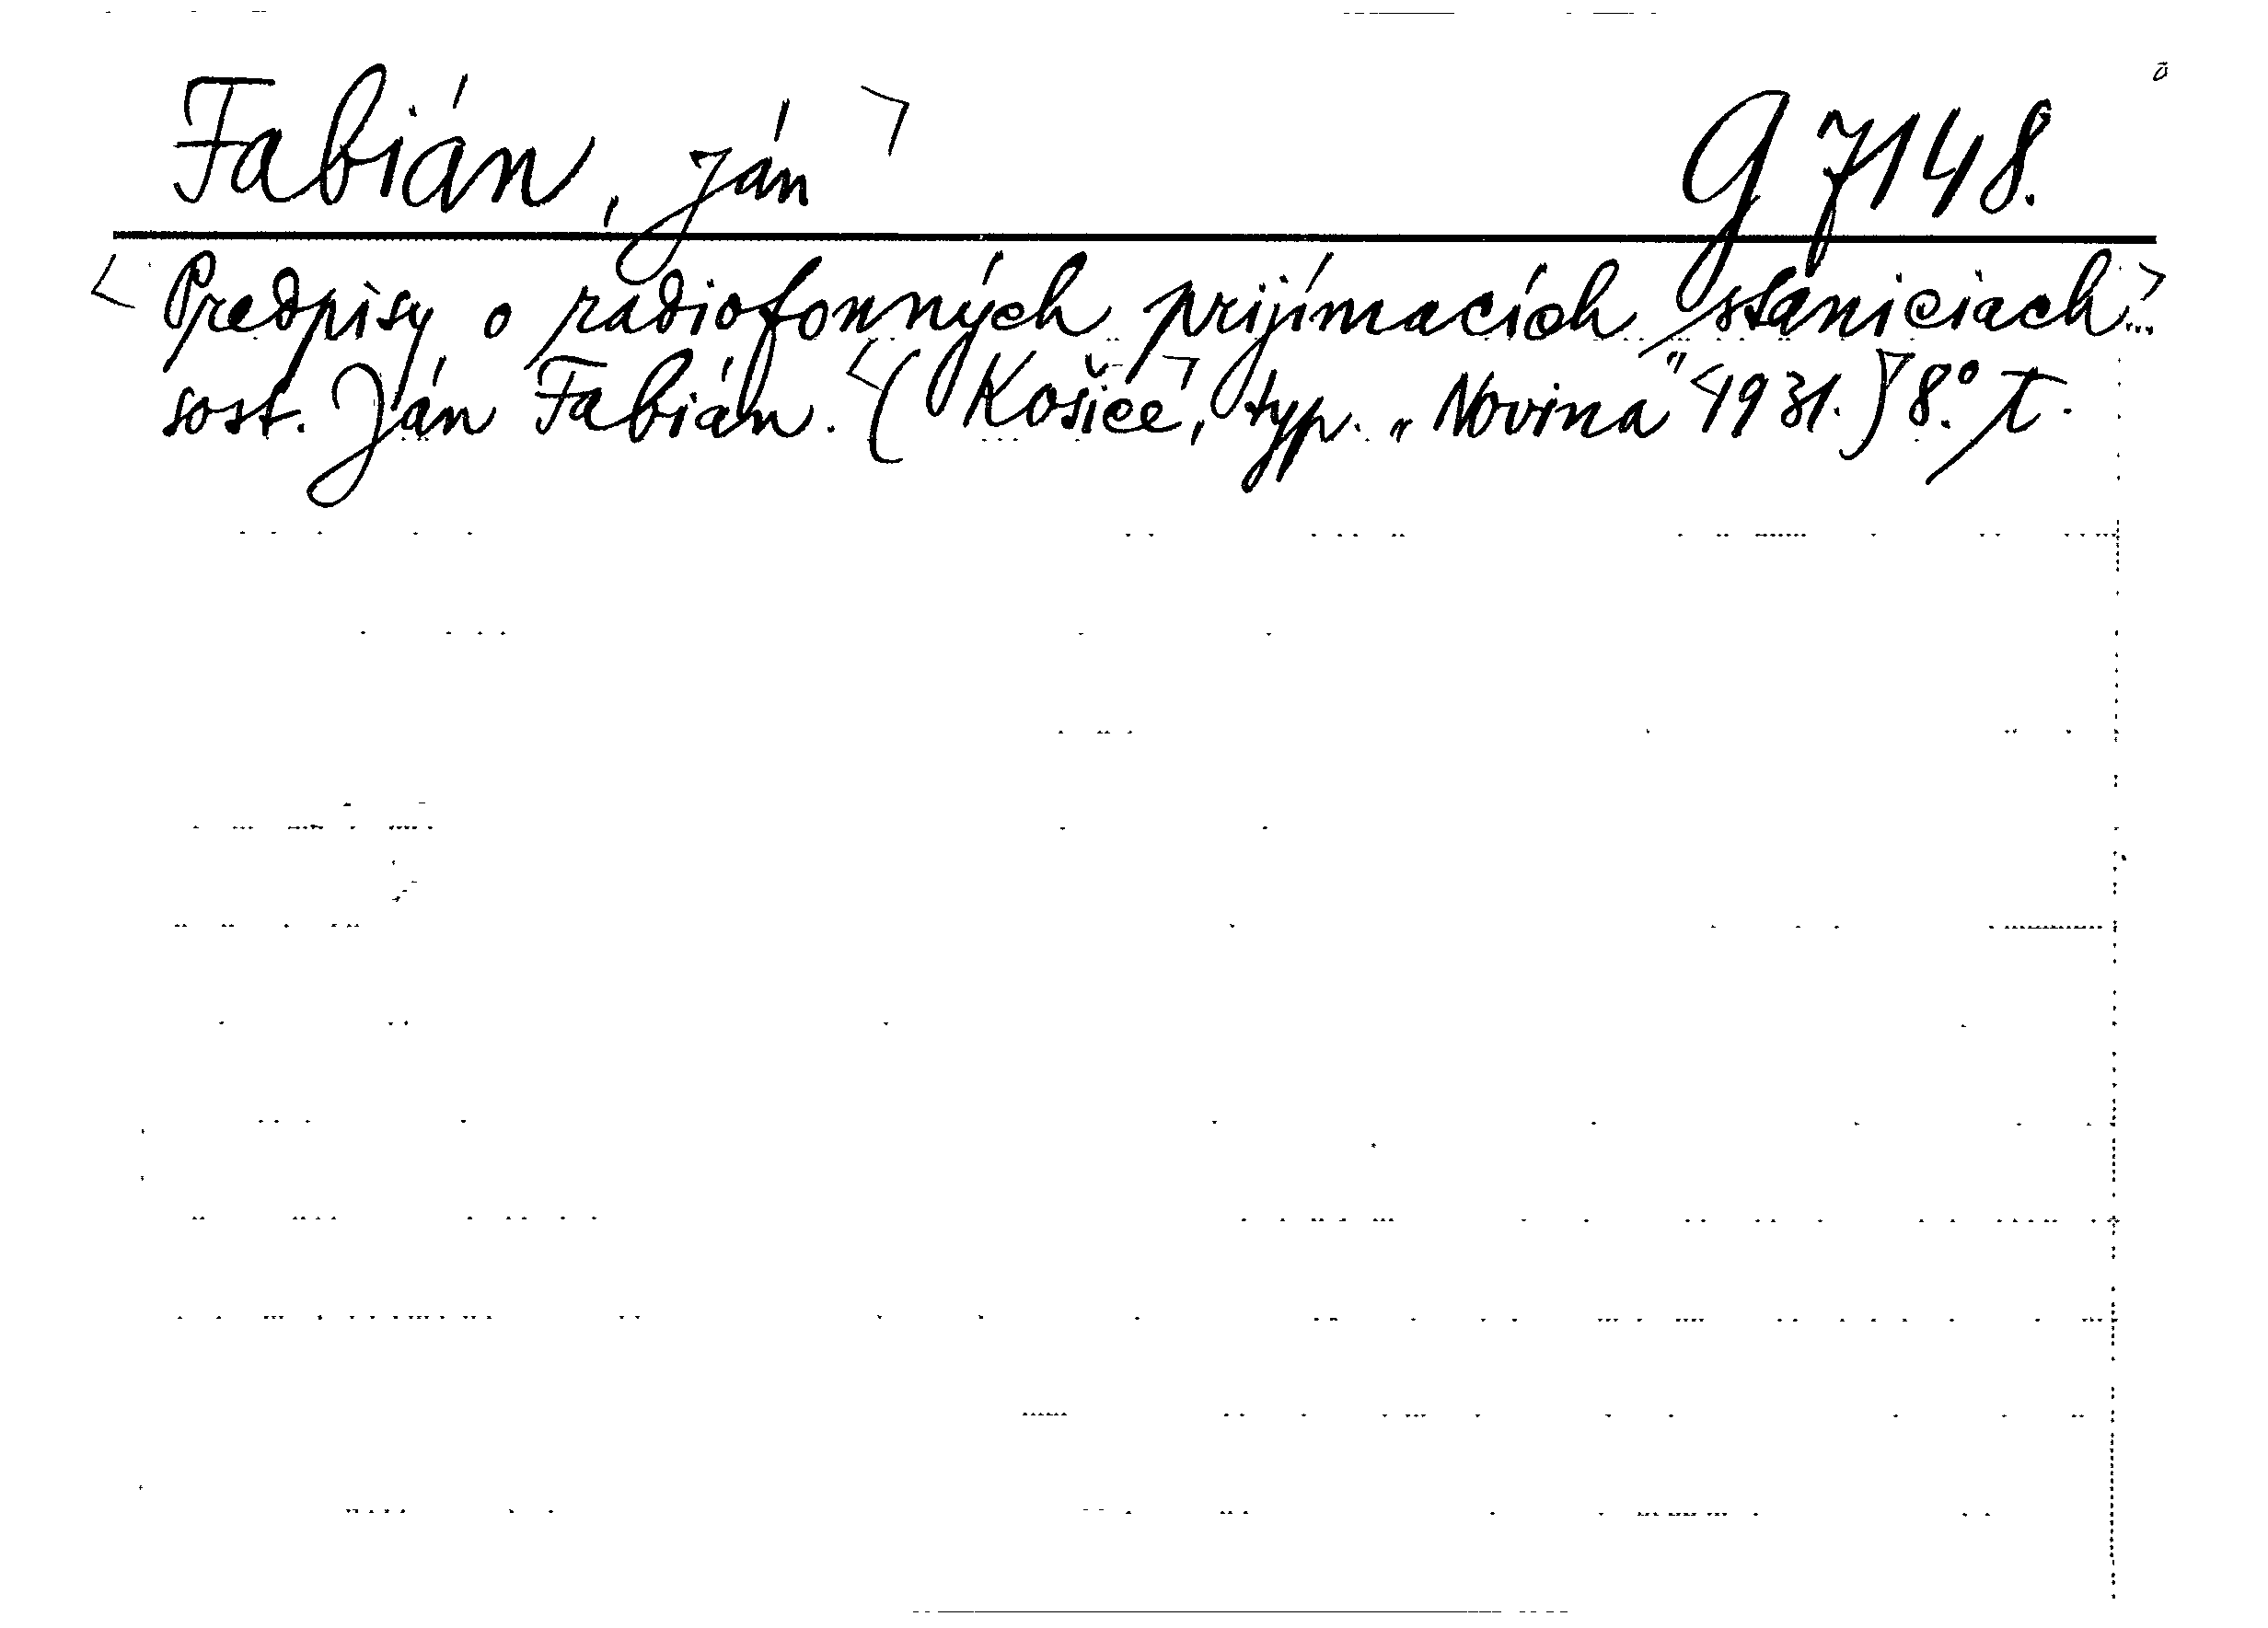 Fabián, Ján G 7148.
Predpisy o radiofonných prijímacích staniciach...
sost. Ján Fabián. (Košice, typ. „Novina" 1931.) 8°. T.